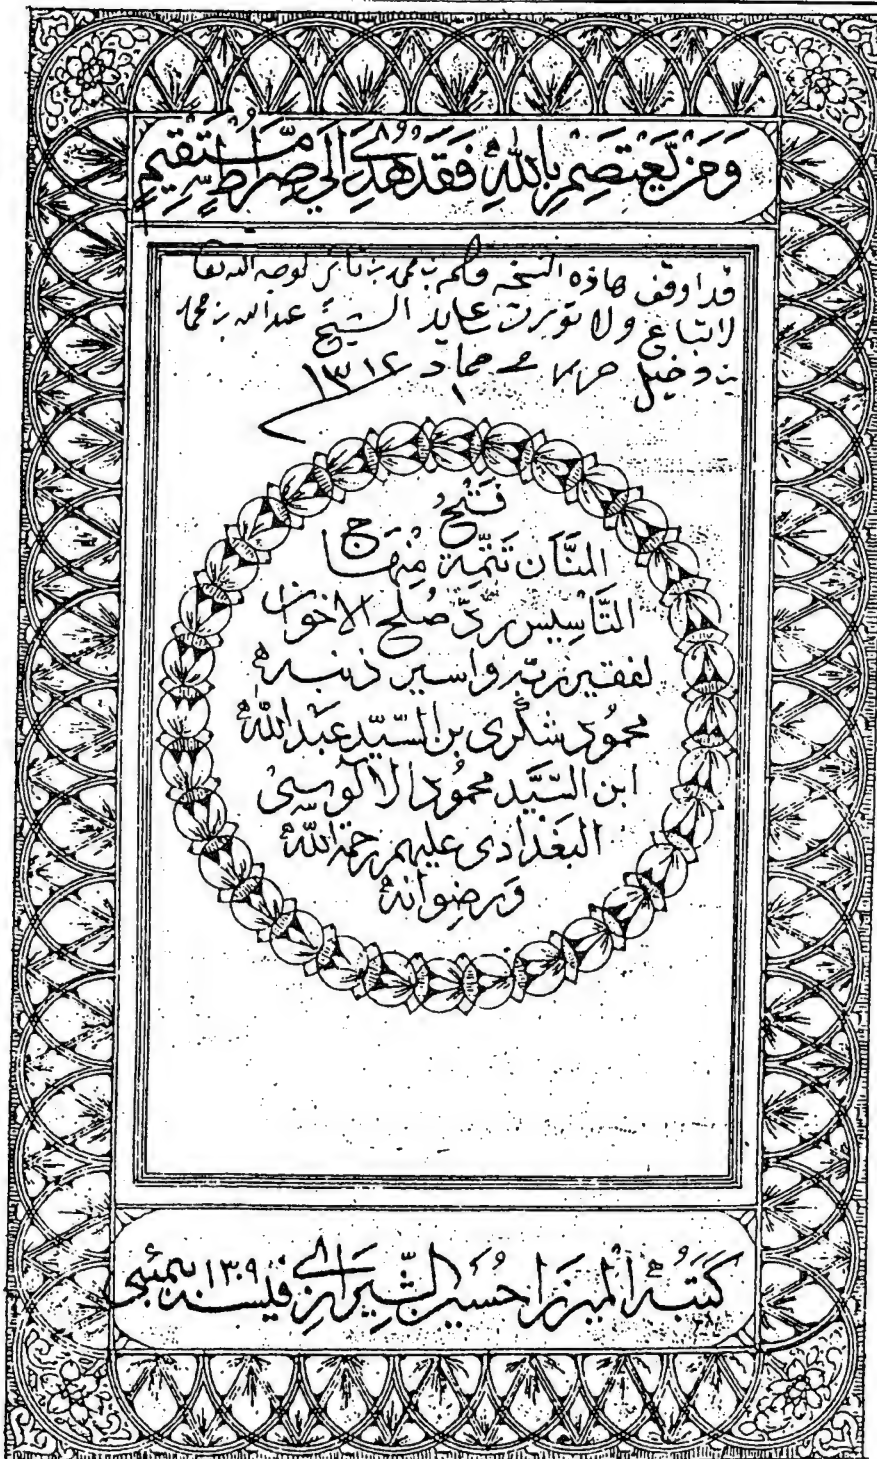 وَمَنْ يَعْتَصِمْ بِاللَّهِ فَقَدْ هُدِيَ إِلَى صِرَاطٍ مُسْتَقِيمٍ
قد اوقف هاذه النسخه بن محمد بن لوجه الله تعا
لا تباع ولا تورث الشيخ عبد الله بن محمد
بن دخيل جماد ١ ١٣١٢
فَتْحُ
المنَّان تَتِمَّة مِنْهَاج
التَّأسِيس ردّ صُلح الاخوان
لفقير ربّه واسير ذنبه
محمُود شكرى بن السّيّد عَبد اللّه
ابن السَّيَّد محمُود الآلوسى
البَغدَادى عليهم رحمة اللّه
ورضوانه
كَتَبَهُ الْمِيرزَا حُسَين الشِّيرَازِي فِي سنه ١٣٠٩ بمبئى